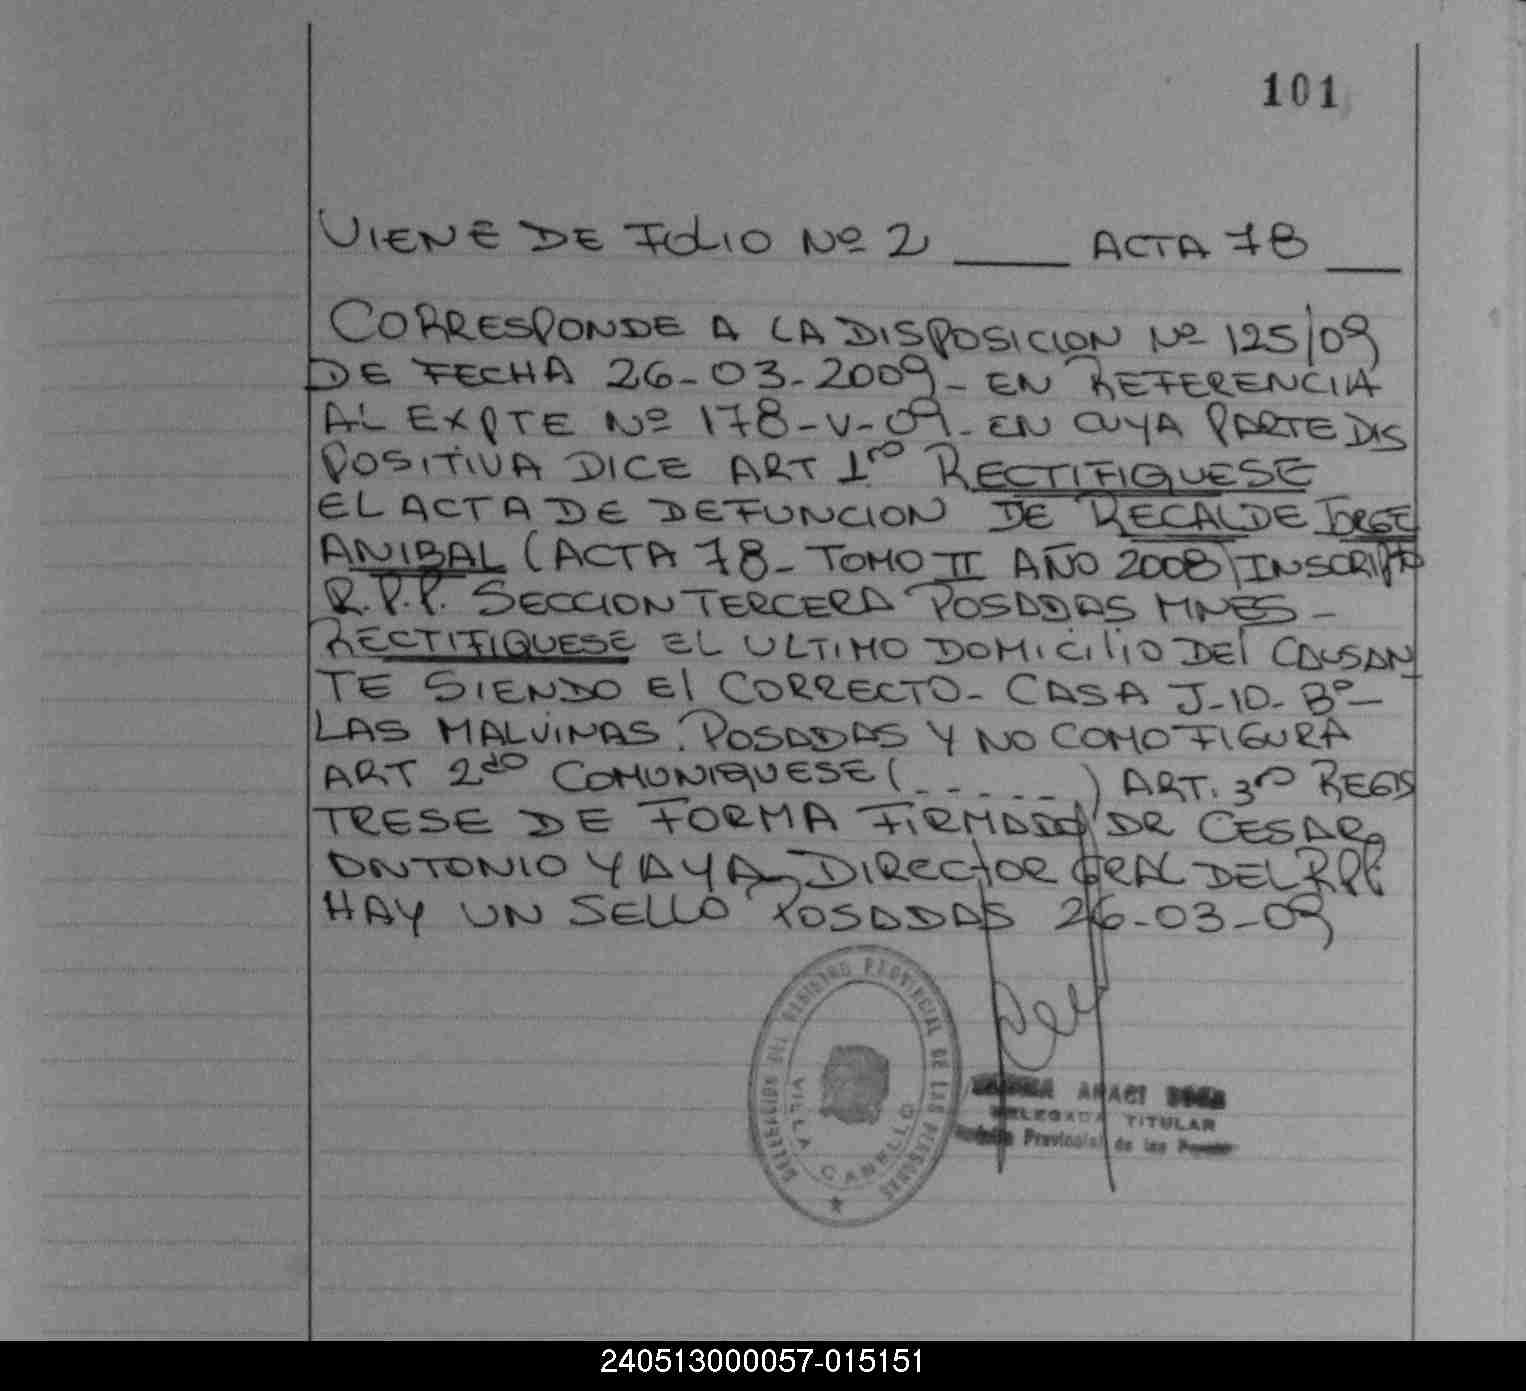 101
VIENE DE FOLIO Nº 2 ____ ACTA 78 ___
CORRESPONDE A LA DISPOSICION Nº 125/09
DE FECHA 26-03-2009- EN REFERENCIA
AL EXPTE Nº 178-V-09- EN CUYA PARTE DIS
POSITIVA DICE ART 1.ro RECTIFIQUESE
EL ACTA DE DEFUNCION DE RECALDE JORGE
ANIBAL (ACTA 78- TOMO II AÑO 2008) INSCRIPTA
R.P.P. SECCION TERCERA POSADAS MNES-
RECTIFIQUESE EL ULTIMO DOMICILIO DEL CAUSAN
TE SIENDO El CORRECTO- CASA J-10- Bº-
LAS MALVINAS. POSADAS Y NO COMO FIGURA
ART 2do COMUNIQUESE (- - - - -) ART. 3ro REGIS
TRESE DE FORMA FIRMADO DR CESAR
ANTONIO YAYA, DIRECTOR GRAL DEL RPP
HAY UN SELLO POSADAS 26-03-09
DELEGACION DEL REGISTRO PROVINCIAL DE LAS PERSONAS
VILLA CABELLO
ARACI
DELEGADA TITULAR
Provincial de las
240513000057-015151